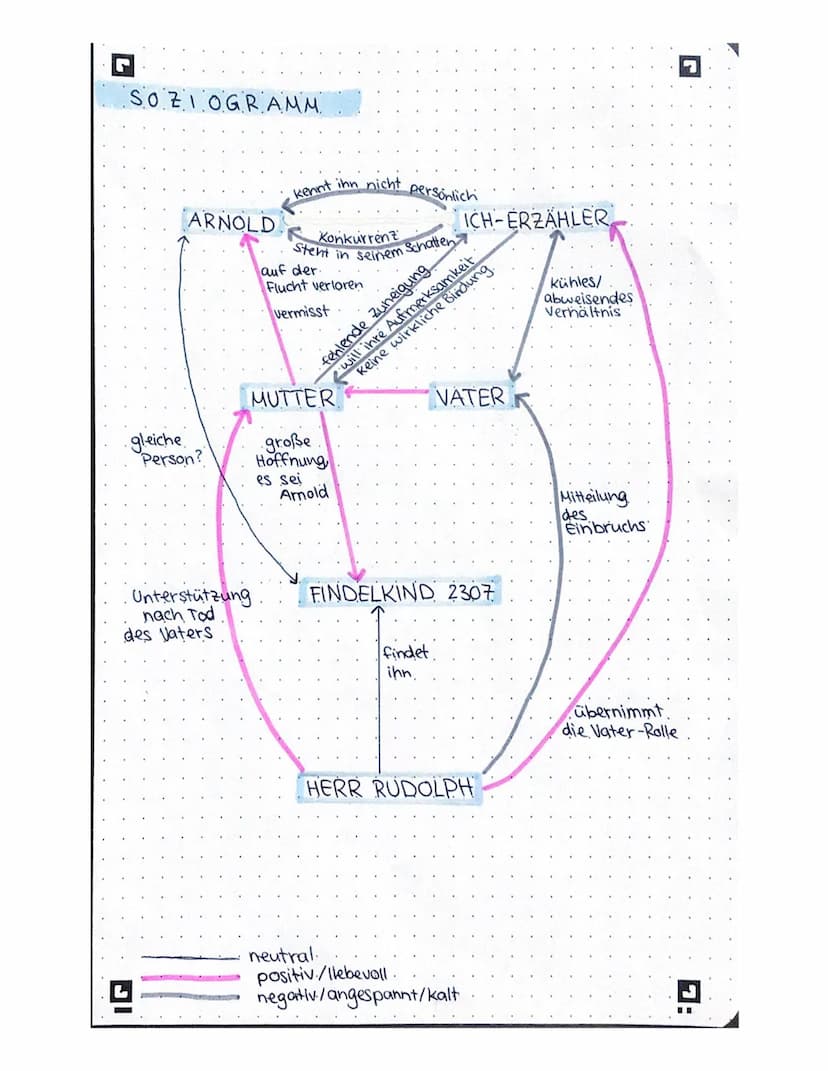 SOZIOGRAMM
kennt ihn nicht persönlich
ARNOLD
ICH-ERZÄHLER
Konkurrenz
steht in seinem Schatten
auf der
Flucht verloren
vermisst
fehlende Zuneigung
will ihre Aufmerksamkeit
keine wirkliche Bindung
kühles/
abweisendes
Verhältnis
MUTTER
VATER
gleiche
Person?
große
Hoffnung,
es sei
Arnold
Mitteilung
des
Einbruchs
FINDELKIND 2307
Unterstützung
nach Tod
des Vaters
findet
ihn
übernimmt
die Vater-Rolle
HERR RUDOLPH
neutral
positiv/liebevoll
negativ/angespannt/kalt